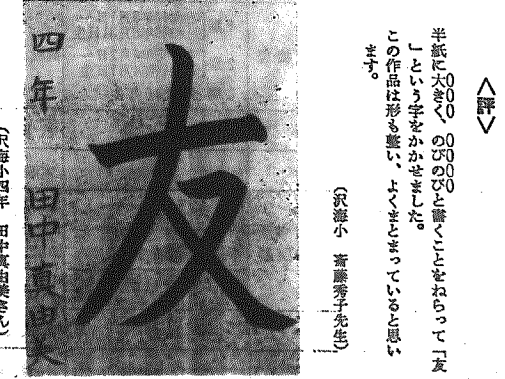 〈評〉
半紙に大きく、のびのびと書くことをねらって「友
」という字をかかせました。
この作品は形も整い、よくまとまっていると思い
ます。
(沢海小 斎藤秀子先生)
友
四年 田中真由美
(沢海小四年 田中真由美さん)